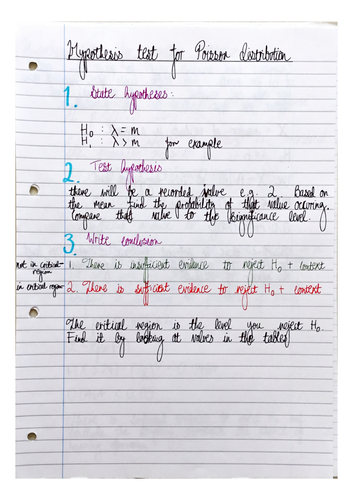 Hypothesis test for Poisson distribution
1. State hypotheses:
H₀ : λ = m
H₁ : λ > m for example
2. Test hypothesis
there will be a recorded value e.g. 2. Based on
the mean find the probability of that value occuring.
Compare that value to the significance level.
3. Write conclusion
not in critical region 1. There is insufficient evidence to reject H₀ + context
in critical region 2. There is sufficient evidence to reject H₀ + context
The critical region is the level you reject H₀.
Find it by looking at values in the tables